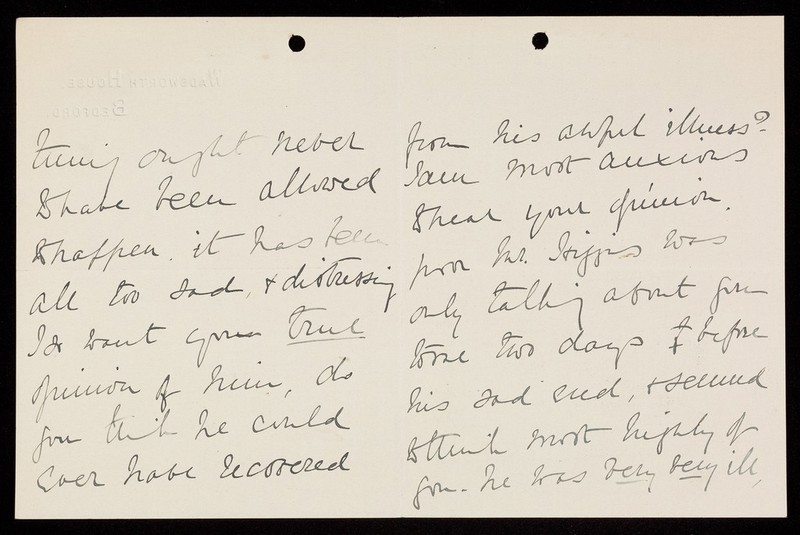 WADSWORTH HOUSE.
BEDFORD.
thing ought never
to have been allowed
to happen. it has been
all too sad, & distressing
I do want your true
opinion of him, do
you think he could
ever have recovered
from his awful illness?
I am most anxious
to hear your opinion.
poor Mr. Higgins was
only talking about you
to me two days before
his sad end, & seemed
to think most highly of
you. he was very very ill,